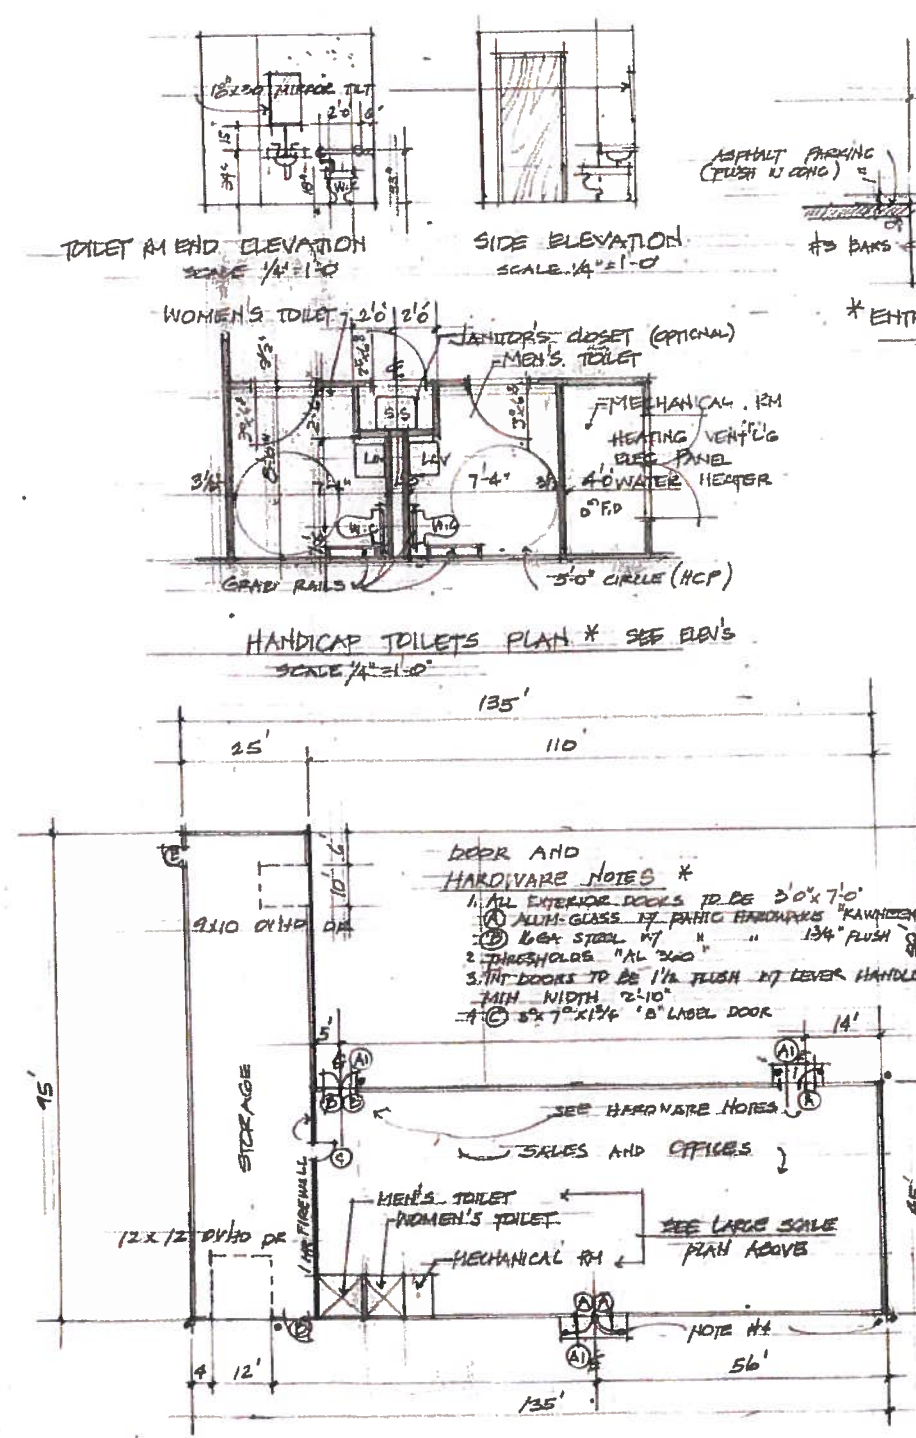 18"x30" MIRROR TILT
2'-0" 6"
15"
34"
18"
33"
W.C.
TOILET RM END ELEVATION
SCALE 1/4"=1'-0"
SIDE ELEVATION
SCALE 1/4"=1'-0"
ASPHALT PARKING
(FLUSH W CONC)
#3 BARS
* ENTR
WOMEN'S TOILET
2'0" 2'0"
JANITOR'S CLOSET (OPTIONAL)
MEN'S TOILET
3°x6⁸
S S
3°x6⁸
MECHANICAL RM
HEATING VENT'L'G
ELEC PANEL
WATER HEATER
LAV LAV
3½"
7'-4"
7'-4"
4'0"
F.D
W.C W.C
GRAB RAILS
5'-0" CIRCLE (HCP)
HANDICAP TOILETS PLAN * SEE ELEV'S
SCALE 1/4"=1'-0"
135'
25'
110'
E
6'
10'
9x10 OVHD DR
DOOR AND
HARDWARE NOTES *
1. ALL EXTERIOR DOORS TO BE 3'0"x 7'-0"
A ALUM-GLASS W/ PANIC HARDWARE "KAWNEER
B 16GA STEEL W/ " " 1 3/4" FLUSH
2 THRESHOLDS "AL 360"
3. INT DOORS TO BE 1 1/2 FLUSH W/ LEVER HANDLE
MIN WIDTH 2'-10"
4 C 3°x 7°x1 3/4 "B" LABEL DOOR
5'
14'
A1
A1
A
95'
STORAGE
SEE HARDWARE NOTES
C
SALES AND OFFICES
1 HR FIREWALL
MEN'S TOILET
WOMEN'S TOILET
MECHANICAL RM
SEE LARGE SCALE
PLAN ABOVE
12 x 12 OVHD DR
A A
NOTE #4
A1
4 12'
56'
135'